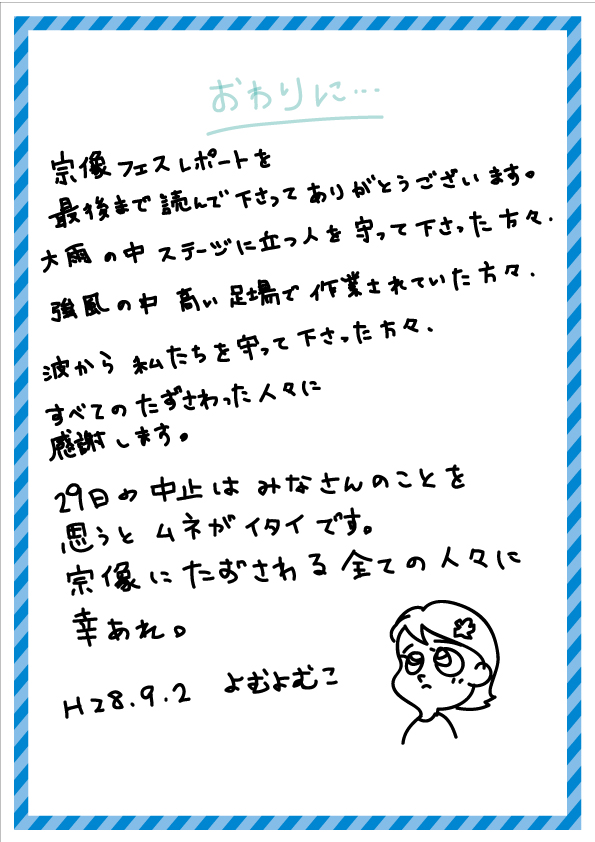 おわりに…
宗像フェスレポートを
最後まで読んで下さってありがとうございます。
大雨の中ステージに立つ人を守って下さった方々、
強風の中高い足場で作業されていた方々、
波から私たちを守って下さった方々、
すべてのたずさわった人々に
感謝します。
29日の中止はみなさんのことを
思うとムネがイタイです。
宗像にたずさわる全ての人々に
幸あれ。
H28.9.2 よむよむこ